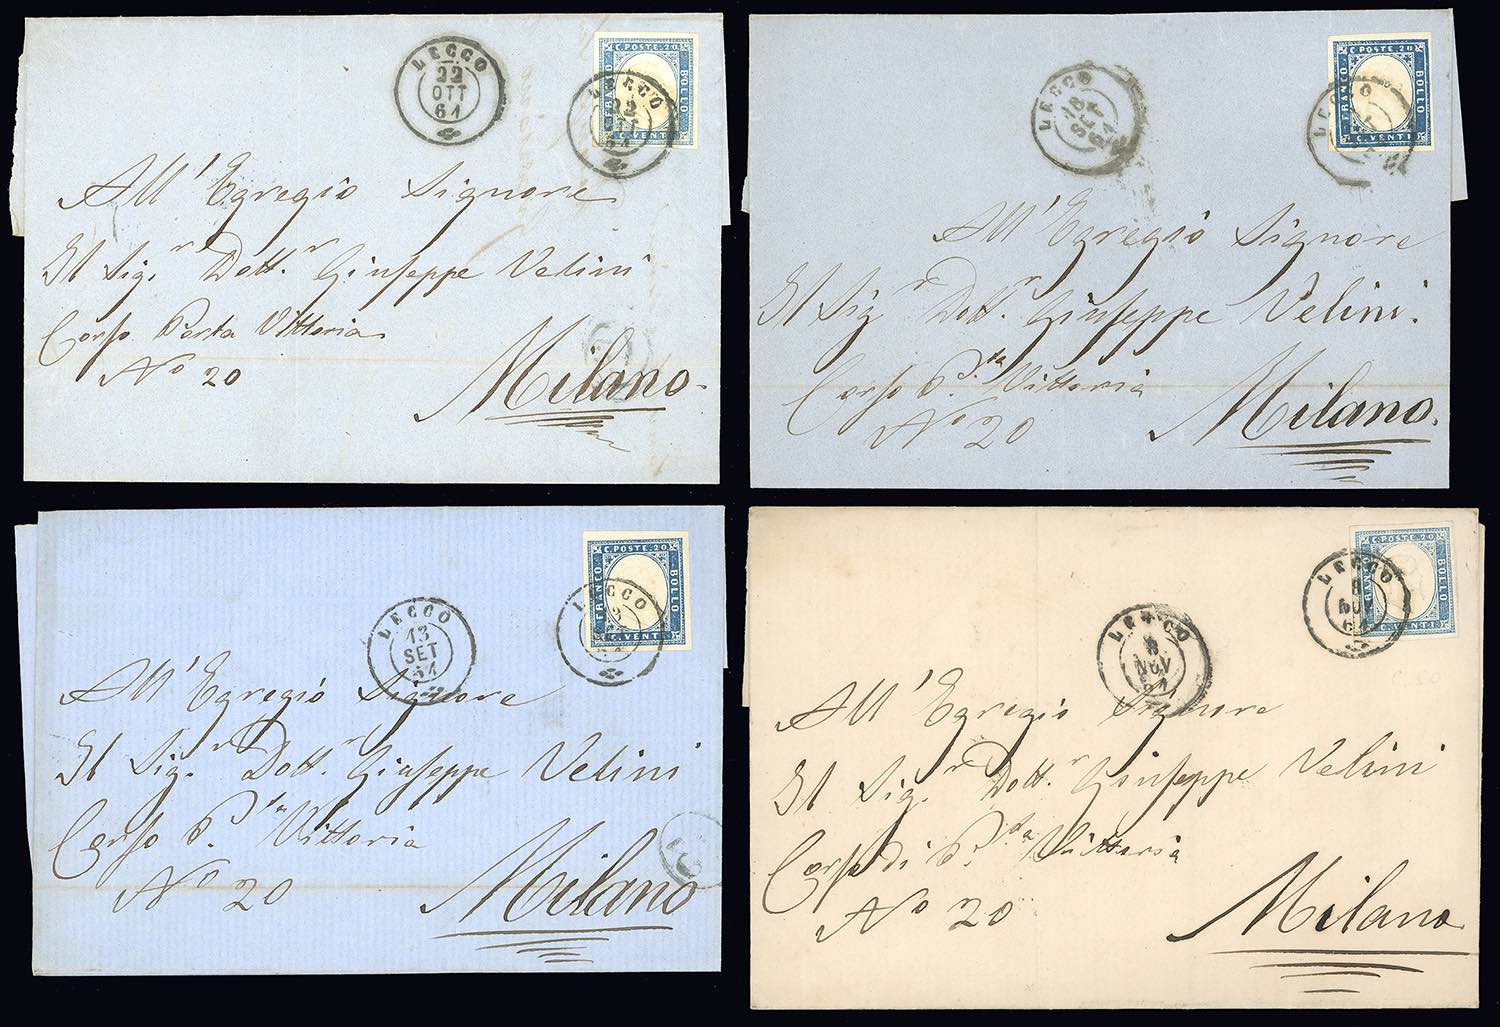 LECCO
22
OTT
61
C. POSTE. 20
FRANCO
BOLLO
C. VENTI
LECCO
22
All' Egregio Signore
Il Sig.r Dott.r Giuseppe Velini
Corso Porta Vittoria
No 20
Milano
LECCO
18
SET
61
C. POSTE 20
FRANCO
BOLLO
C. VENTI
LECCO
All' Egregio Signore
Il Sigr Dott.r Giuseppe Velini.
Corso P.ta Vittoria
No 20
Milano.
LECCO
13
SET
61
C. POSTE. 20
FRANCO
BOLLO
C. VENTI
LECCO
All' Egregio Signore
Il Sig.r Dott.r Giuseppe Velini
Corso P.ta Vittoria
No 20
Milano
LECCO
8
NOV
61
C. POSTE. 20
FRANCO
BOLLO
C. VENTI
LECCO
8
NOV
61
All' Egregio Signore
Il Sig.r Dott.r Giuseppe Velini
Corso di P.ta Vittoria
No 20
Milano